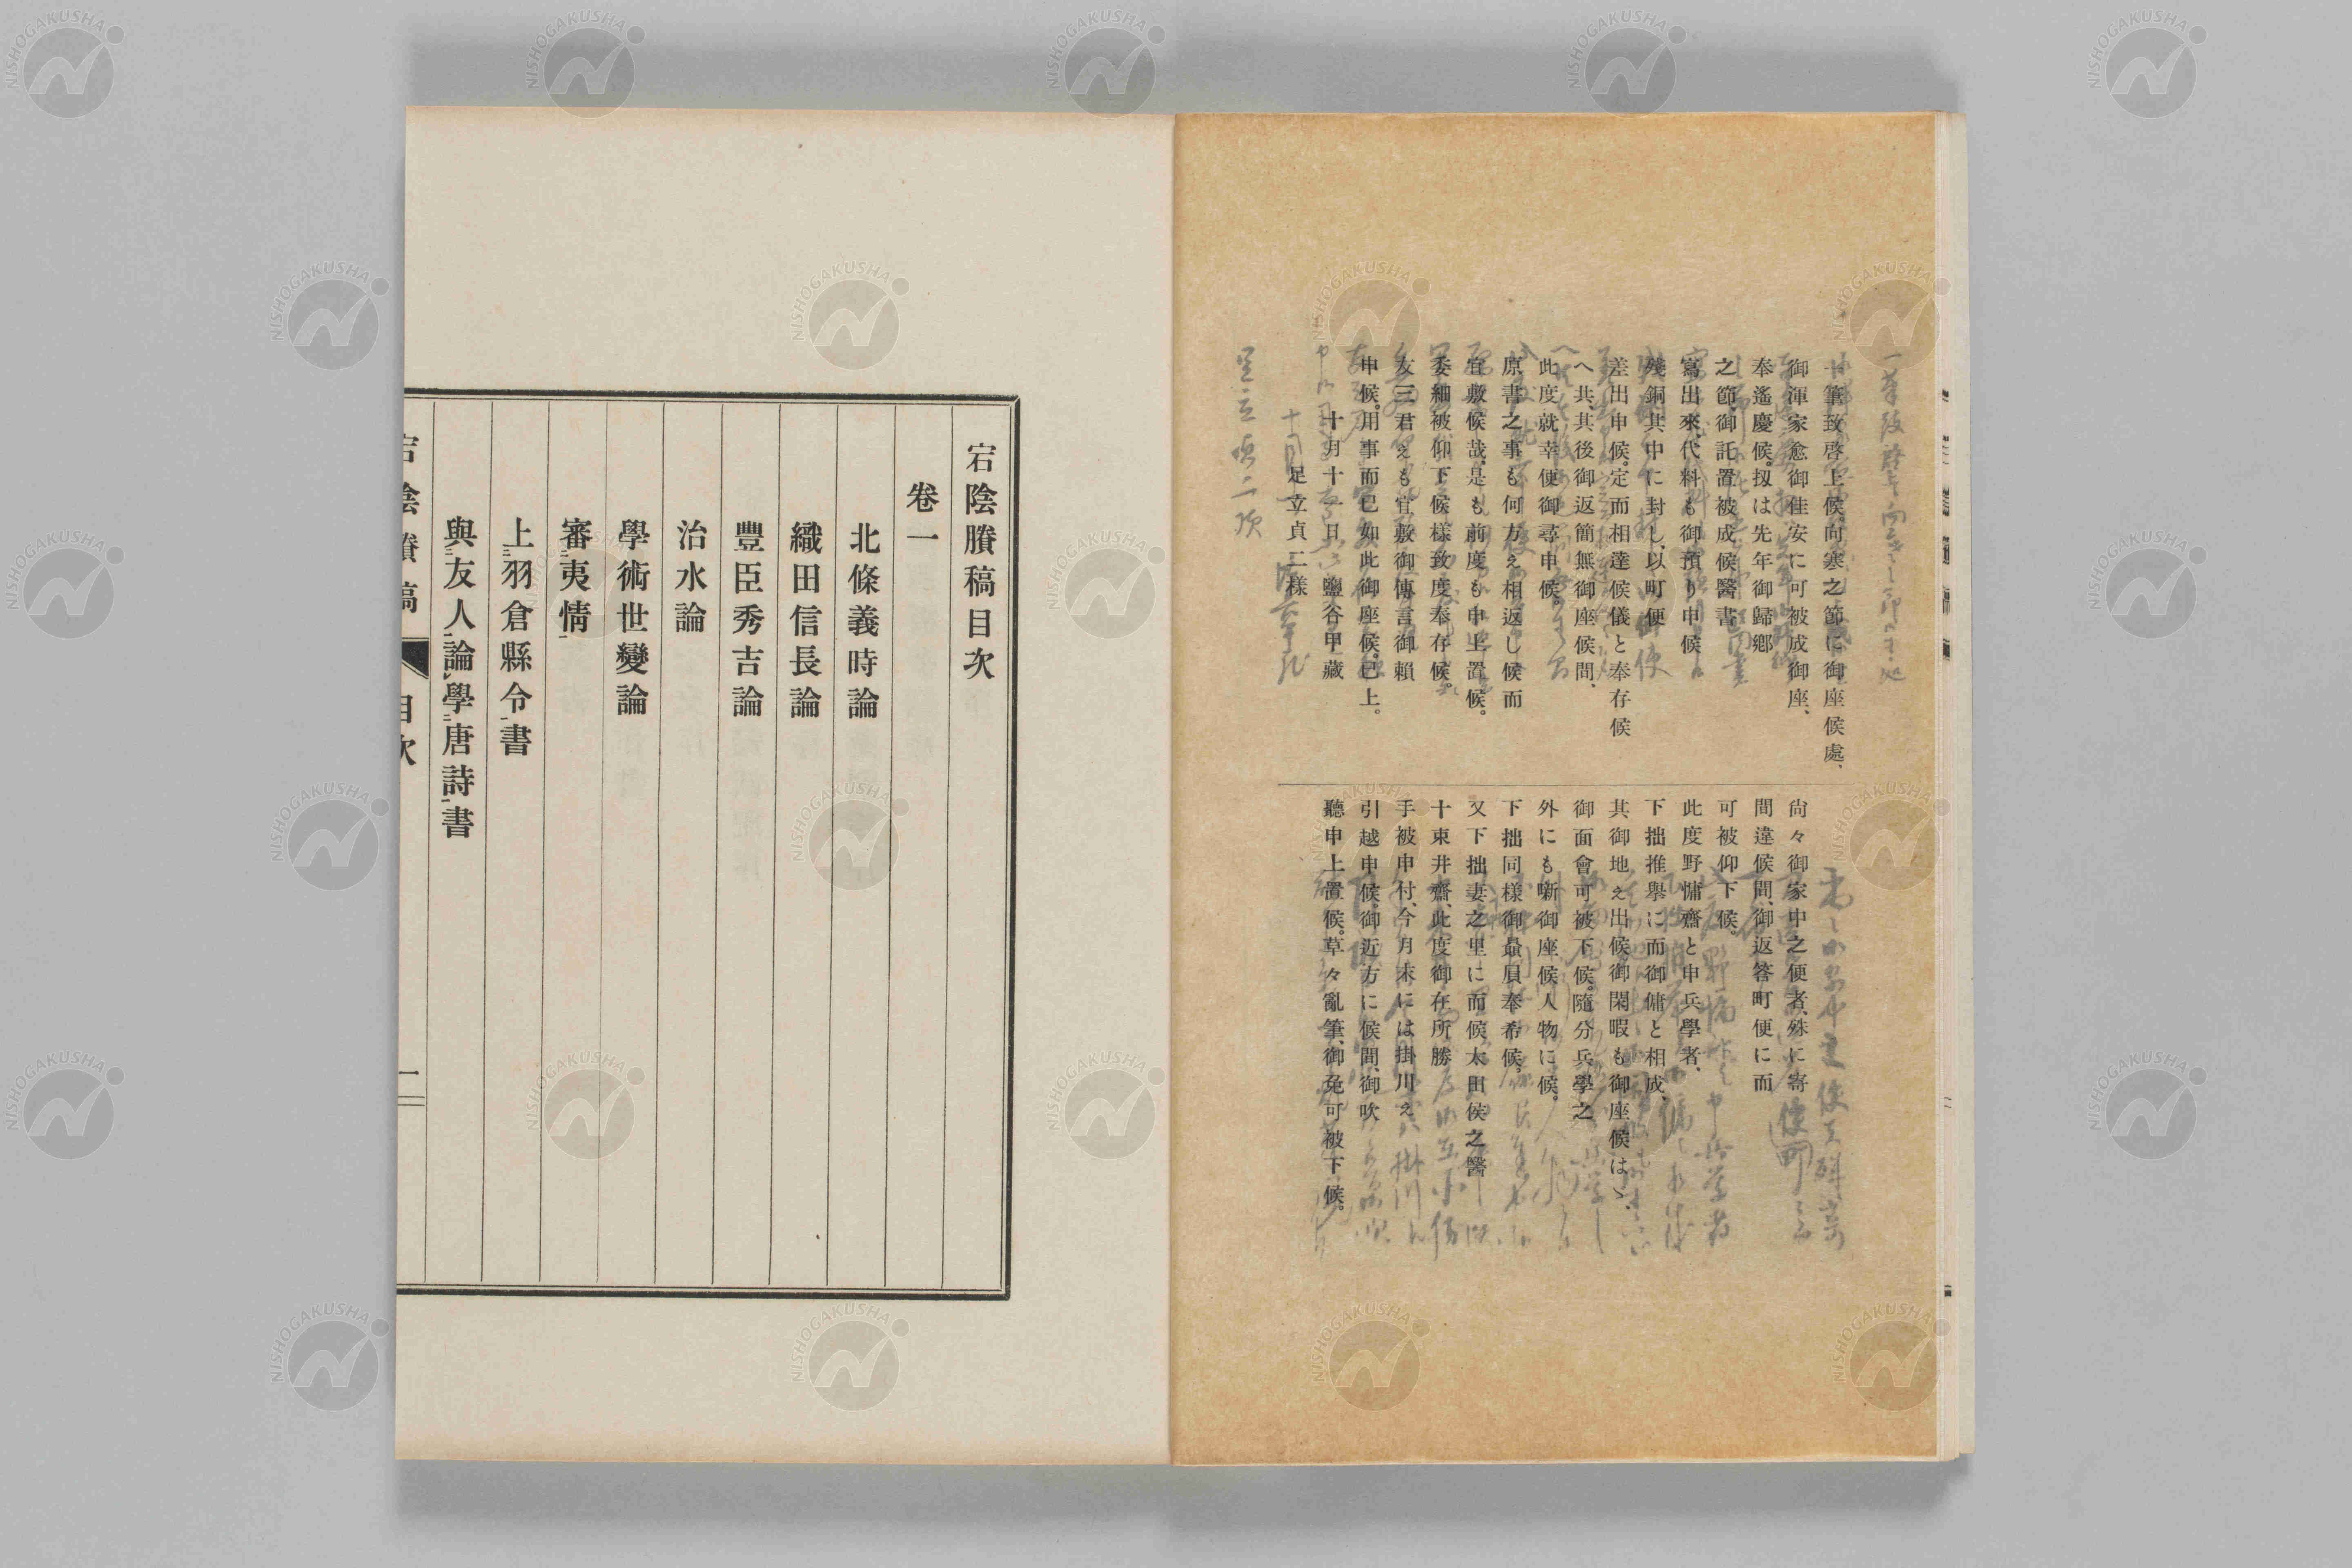 一筆致啓上候向寒之節に御座候處、
御渾家愈御佳安に可被成御座、
奉遙慶候。扨は先年御歸鄕
之節、御託置被成候醫書
寫出來、代料も御預り申候
殘銅其中に封し、以町便
差出申候。定而相達候儀と奉存候
へ共、其後御返簡無御座候間、
此度就幸便御尋申候。
原書之事も何方え相返し候而
宜敷候哉、是も前度も申上置候。
委細被仰下候樣致度奉存候。
友三君えも宜敷御傳言御賴
申候。用事而已如此御座候。已上。
十月十一日 鹽谷甲藏
足立貞二樣
尙々御家中之便者、殊に寄
間違候間、御返答町便に而
可被仰下候。
此度野慵齋と申兵學者、
下拙推擧に而御傭と相成、
其御地え出候御閑暇も御座候はゝ、
御面會可被下候。隨分兵學之
外にも噺御座候人物に候。
下拙同樣御贔屓奉希候。
又下拙妻之里に而候太田侯之醫
十束井齋、此度御存所勝
手被申付、今月末には掛川え
引越申候。御近方に候間、御吹
聽申上置候。草々亂筆、御免可被下候。
宕陰賸稿目次
卷一
北條義時論
織田信長論
豐臣秀吉論
治水論
學術世變論
審夷情
上羽倉縣令書
與友人論學唐詩書
宕陰賸稿 目次 一
NISHOGAKUSHA